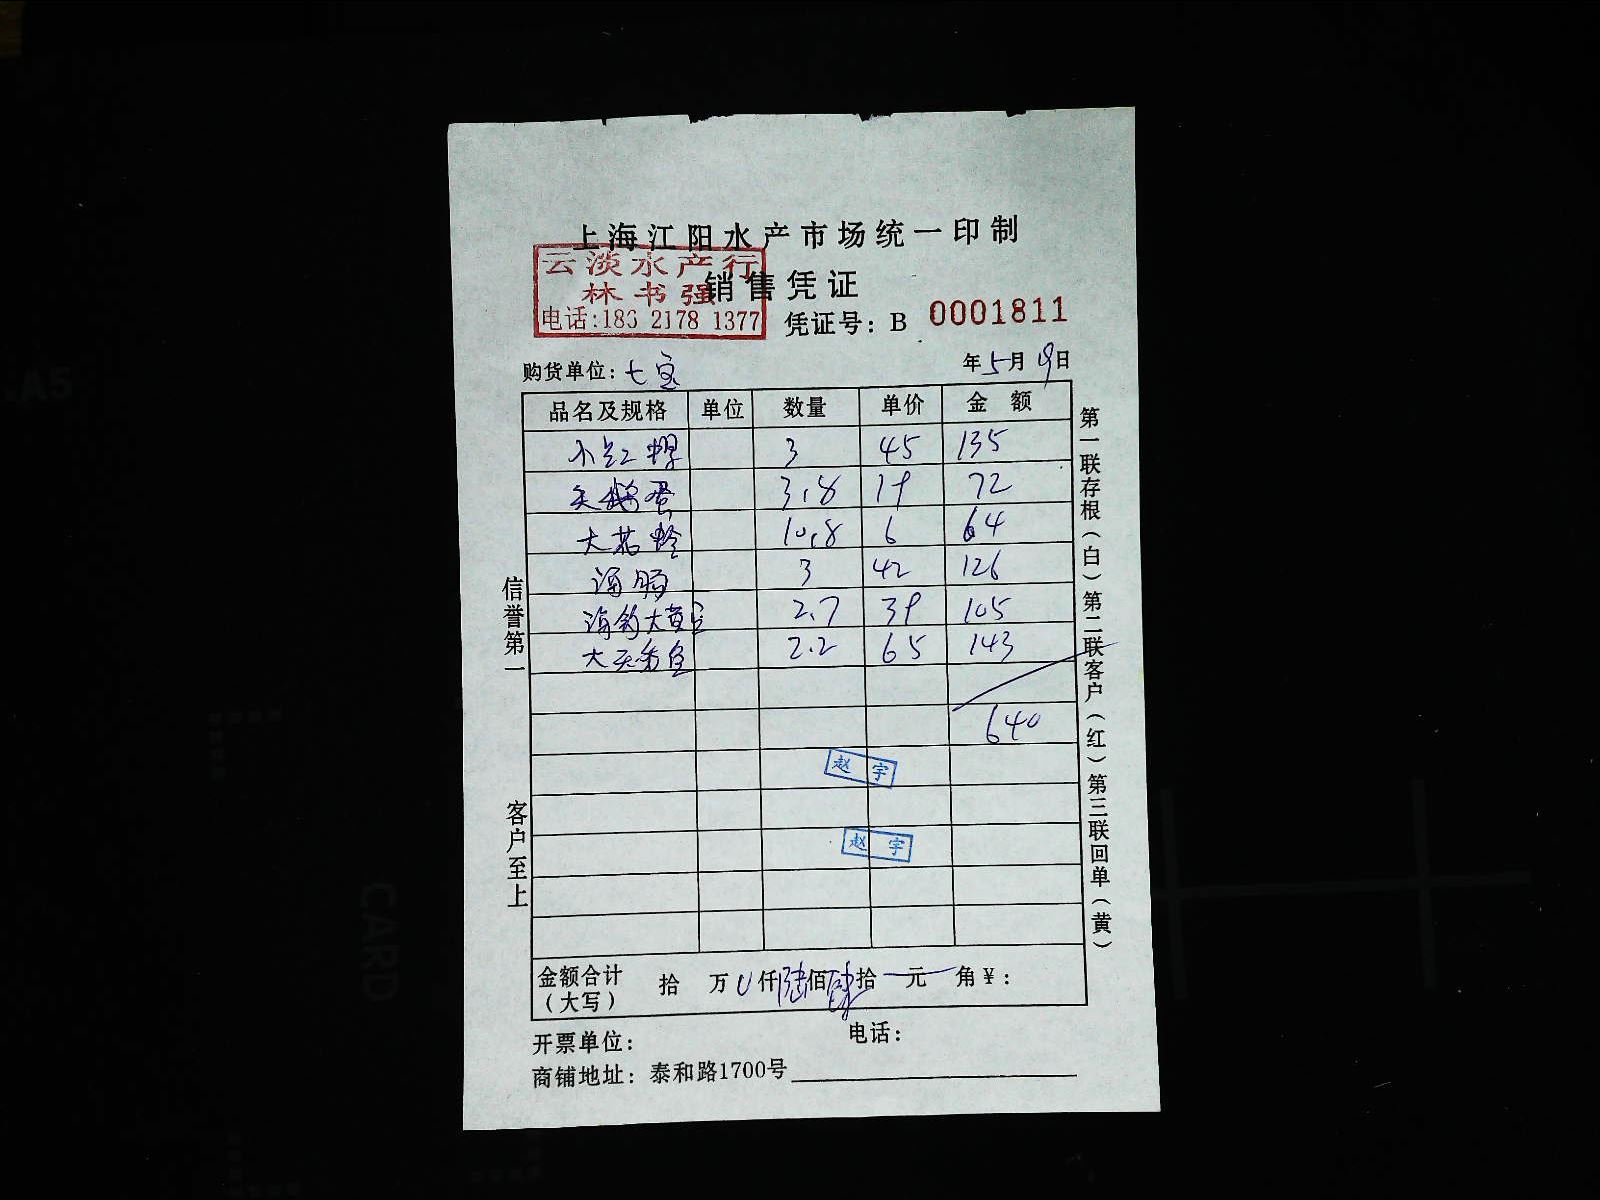 上海江阳水产市场统一印制
云淡水产行
林书强
销售凭证
电话:186 2178 1377
凭证号: B 0001811
购货单位: 七宝 年5月19日
品名及规格 单位 数量 单价 金额
小红 3 45 135
天鹅蛋 3.8 19 72
大花蛤 10.8 6 64
海肠 3 42 126
海钓大黄 2.7 39 105
大 鱼 2.2 65 143
640
赵宇
赵宇
金额合计（大写） 拾 万 仟陆佰肆拾 元 角¥:
开票单位: 电话:
商铺地址: 泰和路1700号
信誉第一
客户至上
第一联存根（白）第二联客户（红）第三联回单（黄）